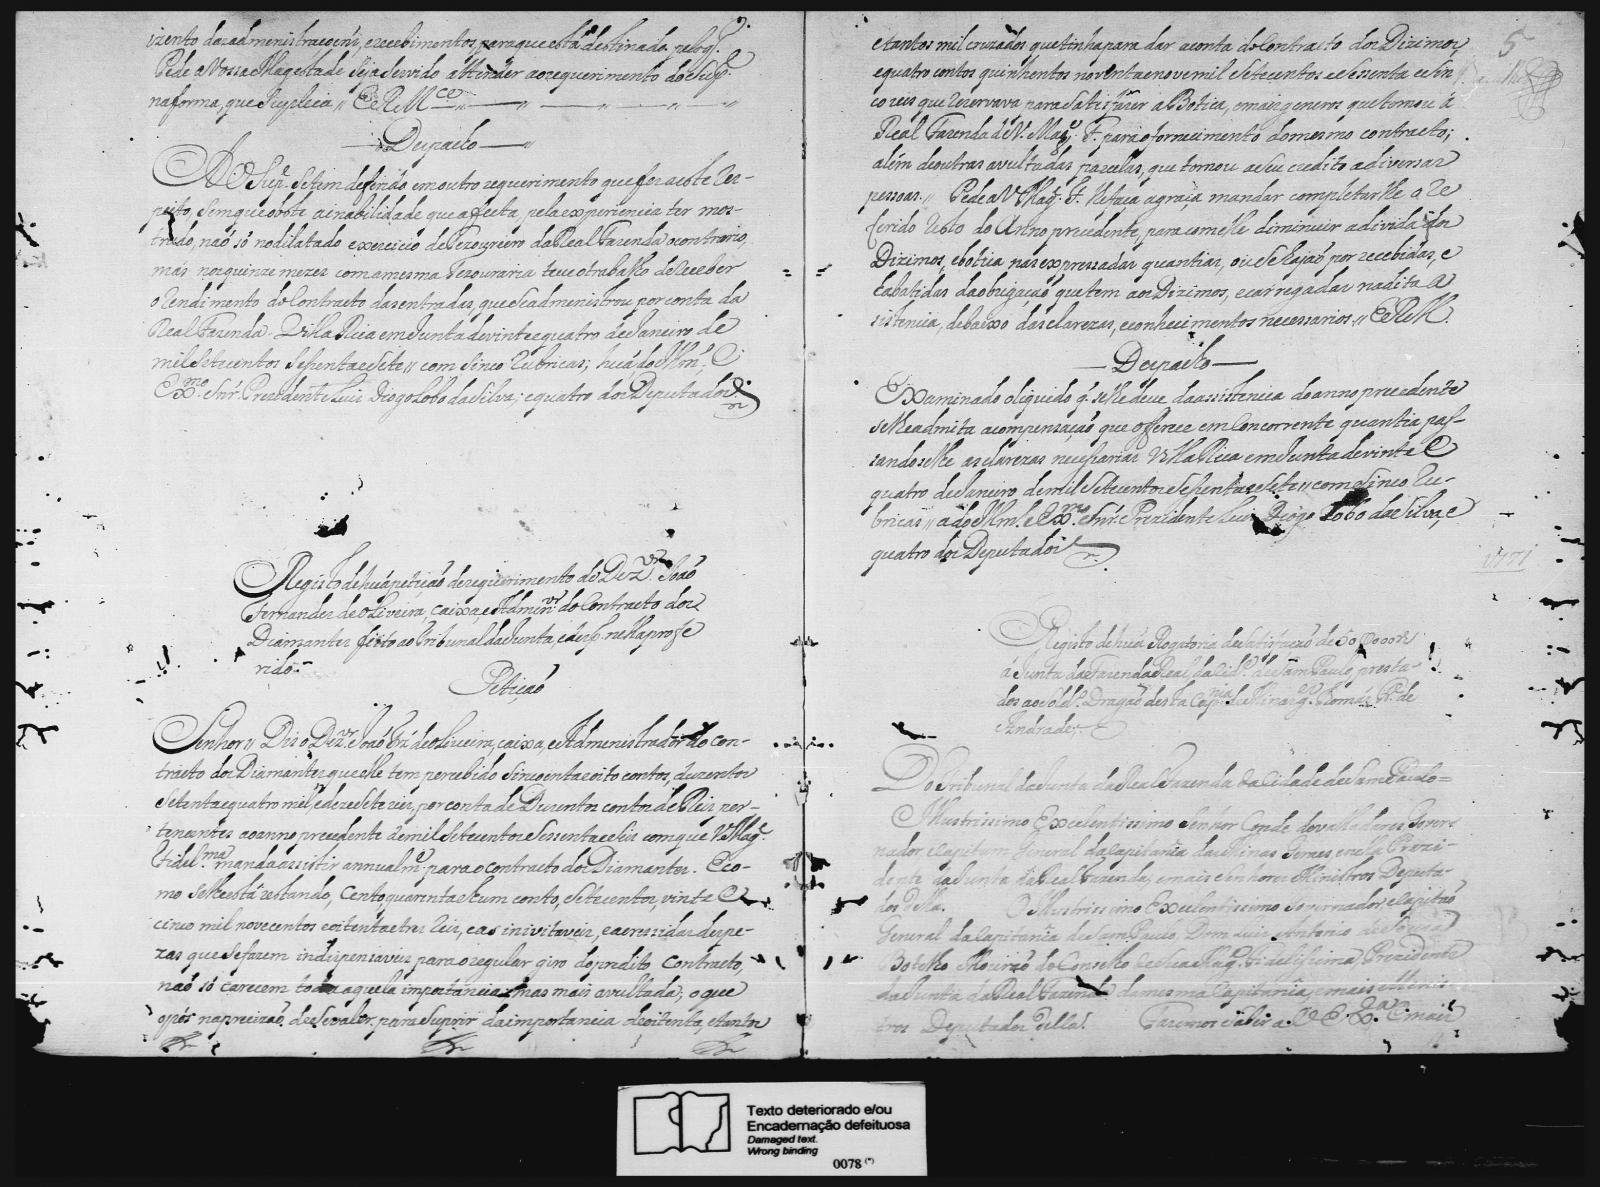 izento dasadmenistracoens, erecebimentos, paraqueestá destinado pelo q.
Pede a Vossa Magestade Seja Servido attender aorequerimento do Sup.e
naforma, que Suplica // E R M ce
Despacho
Ao Sup.e Setem deferido emoutro requerimento que fes a este res-
peito, Semqueobste ainabilidade que afecta, pela experiencia ter mos-
trado, naó só nodilatado exercicio de Tezoureiro da Real Fazenda o contrario,
mas nosquinze mezes com amesma Tezouraria teve o trabalho de receber
o rendimento do Contracto dasentradas, que Se administrou por conta da
Real Fazenda. Villa Rica em Junta de vinte e quatro de Janeiro de
mil Setecentos Sessenta e Sete // com Sinco Rubricas; huá do Illm.o, e
Ex.mo Snr. Prezidente Luis Diogo Lobo da Silva; e quatro dos Deputados
Registo de huá petiçaó de requerimento do Dez.or Joaó
Fernandes de Oliveira, Caixa, e Admin.or do Contracto dos
Diamantes feito ao Tribunal da Junta, e desp. nella profe
rido.
Petiçaó
Senhor // Dis o Dez.or Joaó Frz de Oliveira, caixa, e Admenistrador do con-
tracto dos Diamantes que elle tem percebido Sincoenta e oito contos, duzentos
Setenta e quatro mil, e dezesete reis, por conta de Duzentos contos de Reis per-
tencentes ao anno precedente de mil Setecentos e Sessenta e Seis com que V. Mag.e
Fidel.ma manda assistir annualm.e para o contracto dos Diamantes. E co-
mo Se lhe está restando, Cento quarenta e hum conto, Setecentos, vinte e
cinco mil novecentos e oitenta e tres reis, e as inivitaveis, e acressidas despe-
zas que Se fazem indispensaveis para o regular giro do predito Contracto,
naó só carecem toda aquela importancia mas mais avultada; o que
o pós na precizaó de Se valer para Suprir da importancia de oitenta, e tantos
5
e tantos mil cruzados que tinha para dar a conta do Contracto dos Dizimos,
e quatro contos quinhentos noventa e nove mil Setecentos e Sessenta e Sin
co reis que rezervava para Satisfazer a Botica, e mais generos que tomou á
Real Fazenda de V. Mag.e F. para o fornecimento do mesmo contracto;
além de outras avultadas parcelas, que tomou a Seu credito a diversas
pessoas. // Pede a V. Mag.e F. lhe faça a graça mandar completar lhe o re
ferido resto do Anno precedente, para com elle diminuir a divida dos
Dizimos, e botica nas expressadas quantias, ou Se hajaó por recebidas, e
rabatidas da obrigaçaó que tem aos Dizimos, e carregadas na dita a
sistencia, debaixo das clarezas, e conhecimentos necessarios. // E R M.
Despacho
Examinado o liquido q. Se lhe deve da assistencia do anno precedente
Se lhe admita a compensaçaó que offerece em Concorrente quantia pas-
sando Se lhe as clarezas necessarias Villa Rica em Junta de vinte e
quatro de Janeiro de mil Setecentos Sessenta e Sete // com Sinco Ru-
bricas // a do Illm. e Ex.mo Snr. Prezidente Luis Diogo Lobo da Silva, e
quatro dos Deputados
1771
Registo de huá Rogatoria de Satisfaçaó de
á Junta da Fazenda Real da Cid.e de Sam Paulo, presta-
dos ao Sold.o Dragaó desta Cap.nia de Minas G.es Thome R.z de
Andrade.
Do Tribunal da Junta da Real Fazenda da Cidade de Sam Paulo=
Illustrissimo e Excelentissimo Senhor Conde de Valladares Gover
nador e Capitam General da Capitania das Minas Geraes, e nella Prezi-
dente da Junta da Real Fazenda, e mais Senhores Ministros Deputa-
dos della. O Illustrissimo e Excelentissimo Governador, e Capitaó
General da Capitania de Sam Paulo, Dom Luis Antonio de Souza
Botelho Mouraó do Conselho de Sua Mag.e Fidelissima, Prezidente
da Junta da Real Fazenda da mesma Capitania, e mais Minis
tros Deputados della. Fazemos Saber a V. E. e mais
Texto deteriorado e/ou
Encadernação defeituosa
Damaged text.
Wrong binding
0078 (*)